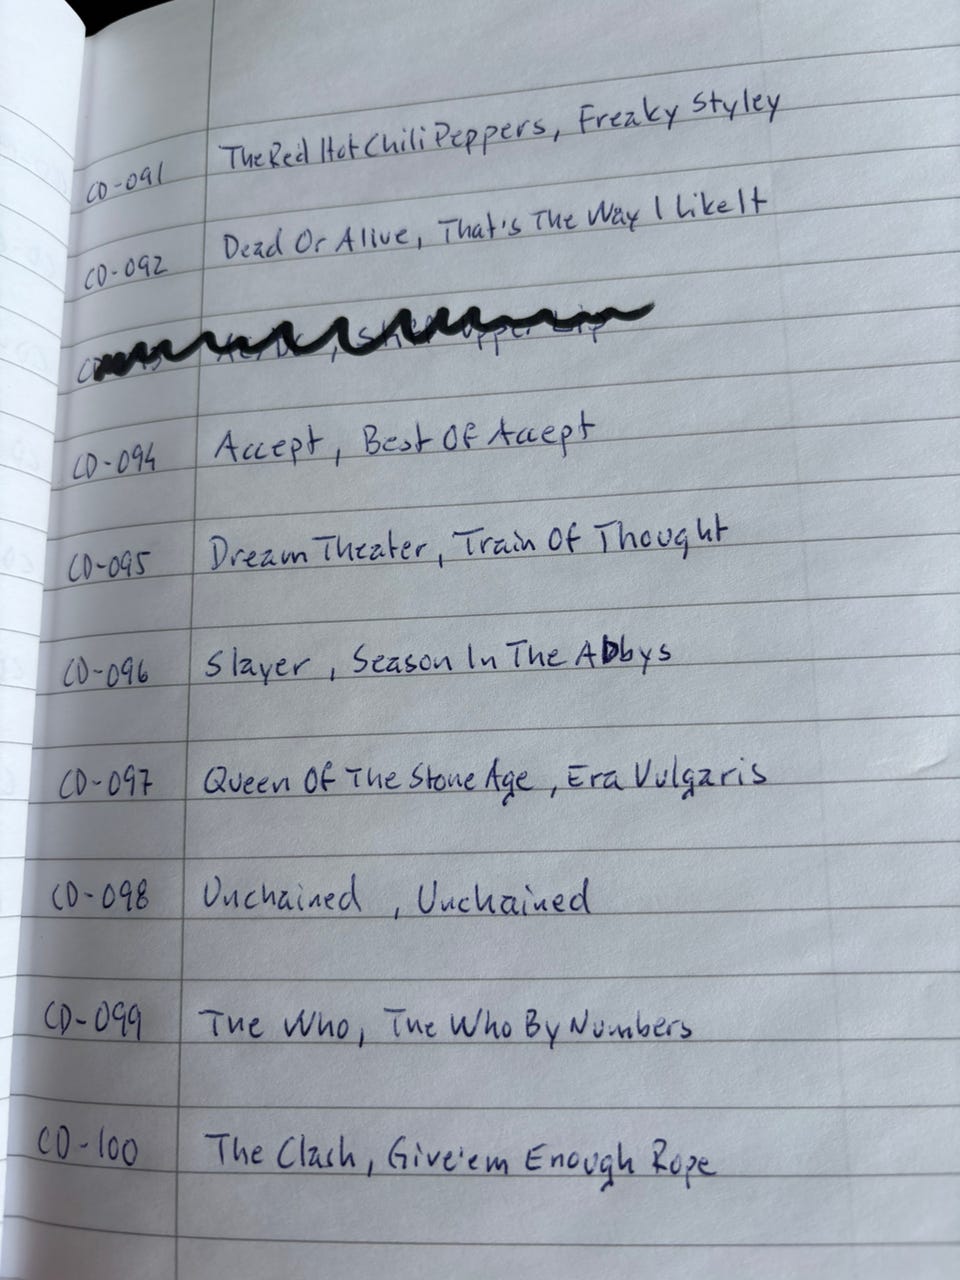 CD-091 The Red Hot Chili Peppers, Freaky Styley
CD-092 Dead Or Alive, That's The Way I Like It
CD-094 Accept, Best Of Accept
CD-095 Dream Theater, Train Of Thought
CD-096 Slayer, Season In The Abbys
CD-097 Queen Of The Stone Age, Era Vulgaris
CD-098 Unchained, Unchained
CD-099 The Who, The Who By Numbers
CD-100 The Clash, Give'em Enough Rope